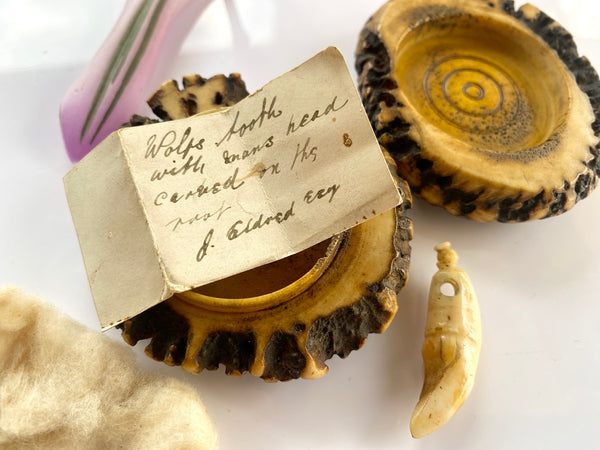 Wolfs tooth
with mans head
carved on the
root
J. Eldred Esq